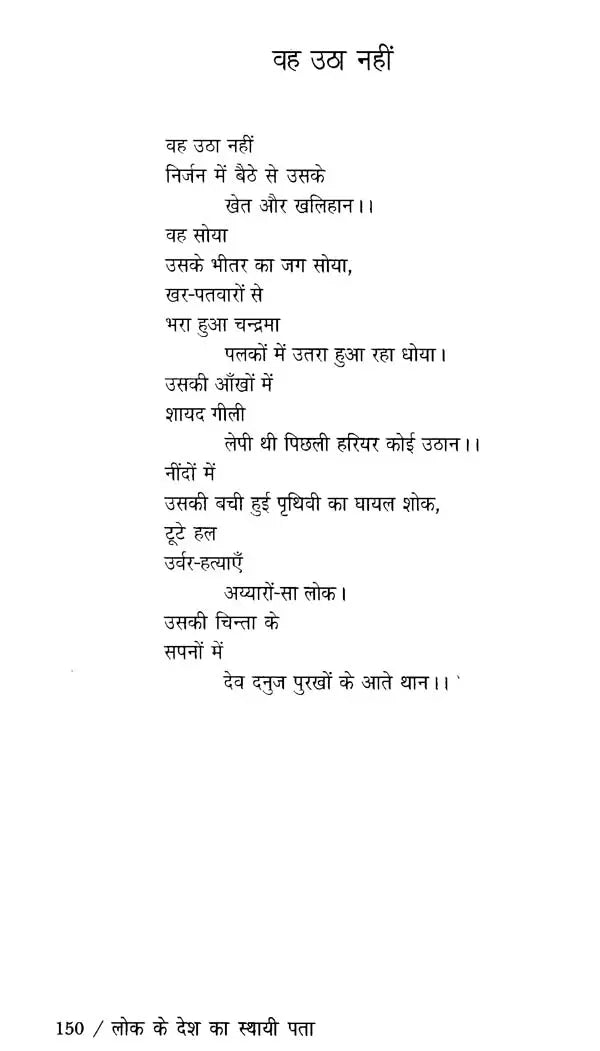 वह उठा नहीं
वह उठा नहीं
निर्जन में बैठे से उसके
खेत और खलिहान।।
वह सोया
उसके भीतर का जग सोया,
खर-पतवारों से
भरा हुआ चन्द्रमा
पलकों में उतरा हुआ रहा धोया।
उसकी आँखों में
शायद गीली
लेपी थी पिछली हरियर कोई उठान।।
नींदों में
उसकी बची हुई पृथिवी का घायल शोक,
टूटे हल
उर्वर-हत्याएँ
अय्यारों-सा लोक।
उसकी चिन्ता के
सपनों में
देव दनुज पुरखों के आते थान।।
150 / लोक के देश का स्थायी पता